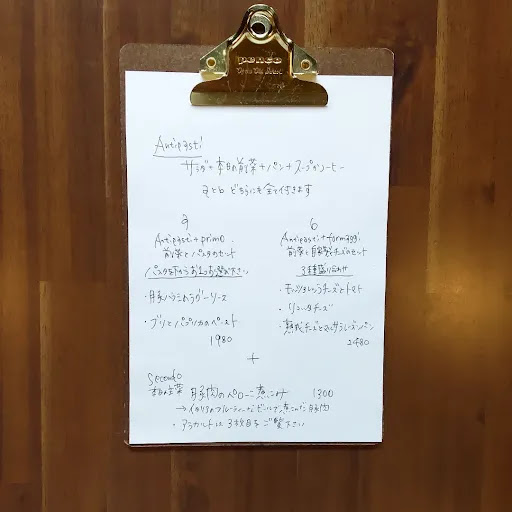 penco
Antipasti
サラダ+本日の前菜+パン+スープorコーヒー
aとb どちらにも全て付きます
a
Antipasti+primo
前菜とパスタのセット
パスタを下からお1つお選び下さい
・豚バラミンチのラグーソース
・ブリとパプリカのペースト
1980
b
Antipasti+formaggi
前菜と自家製チーズのセット
3種盛り合わせ
・モッツァレッラチーズとトマト
・リコッタチーズ
・熟成チーズと
パン
2480
+
Secondo
本日の主菜 豚肉のペローニ煮こみ 1300
→イタリアのフルーティーなビールで煮こんだ豚肉
・アラカルトは3枚目をご覧下さい